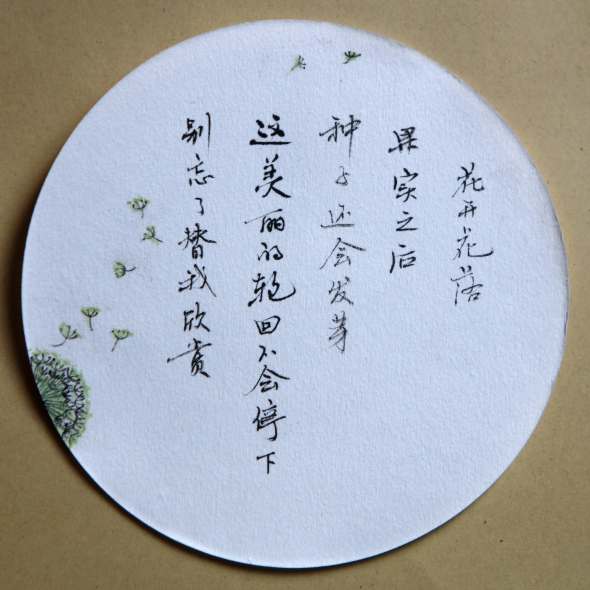 花开花落
果实之后
种子还会发芽
这美丽的轮回不会停下
别忘了替我欣赏